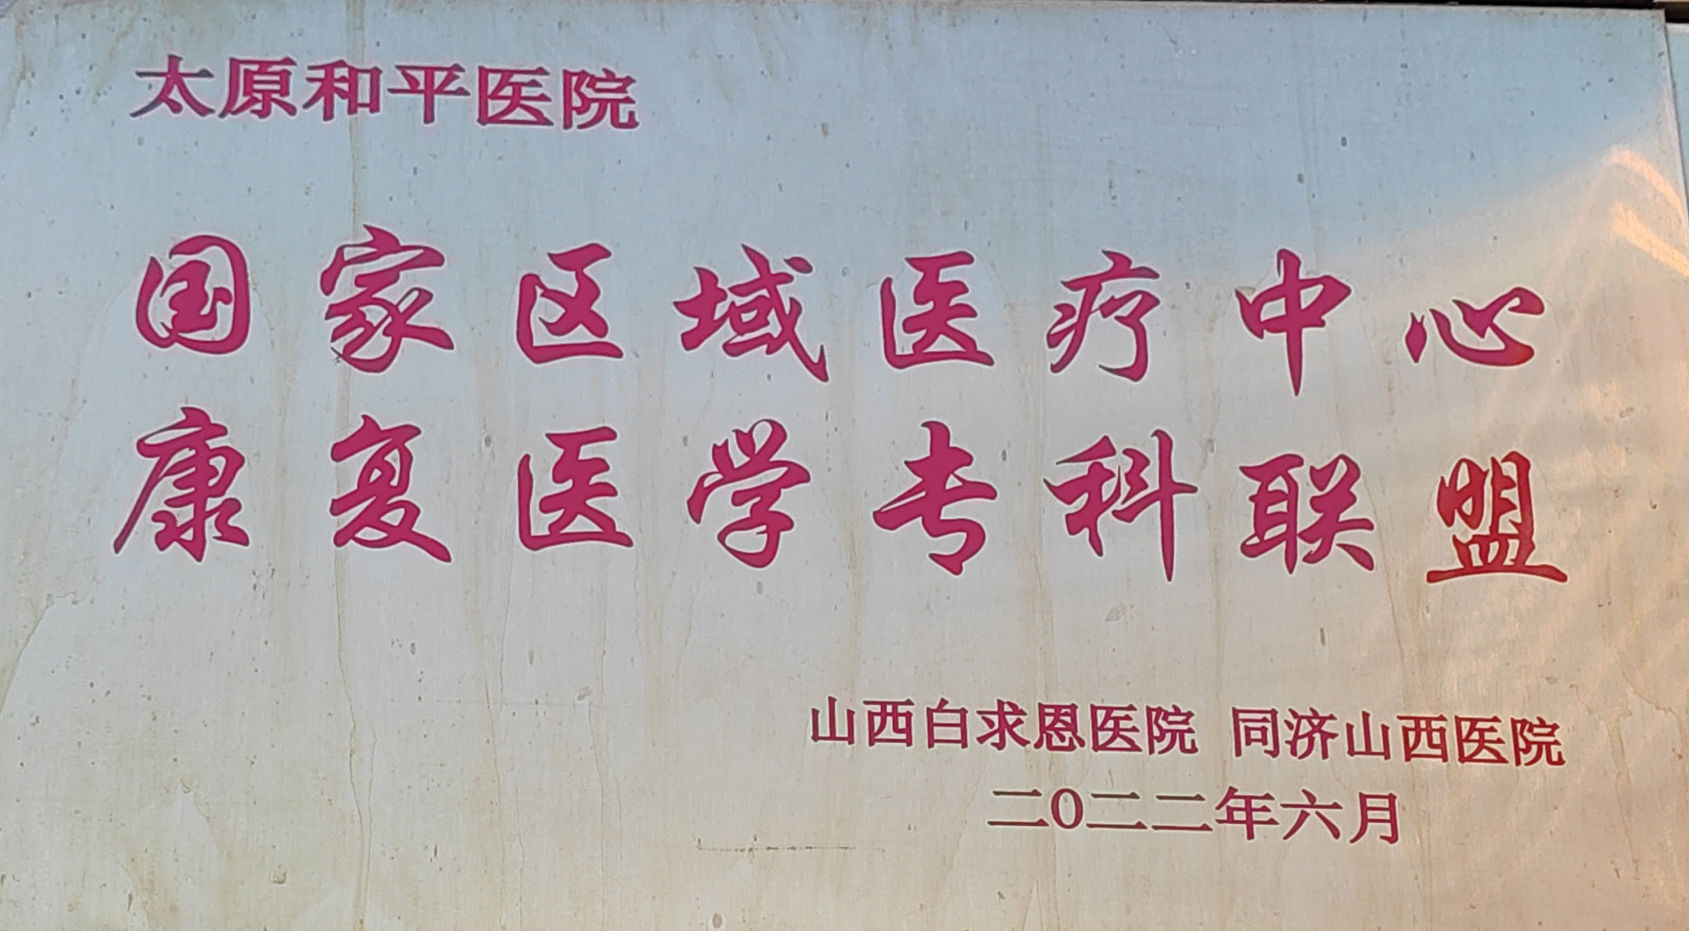 太原和平医院
国家区域医疗中心
康复医学专科联盟
山西白求恩医院 同济山西医院
二〇二二年六月